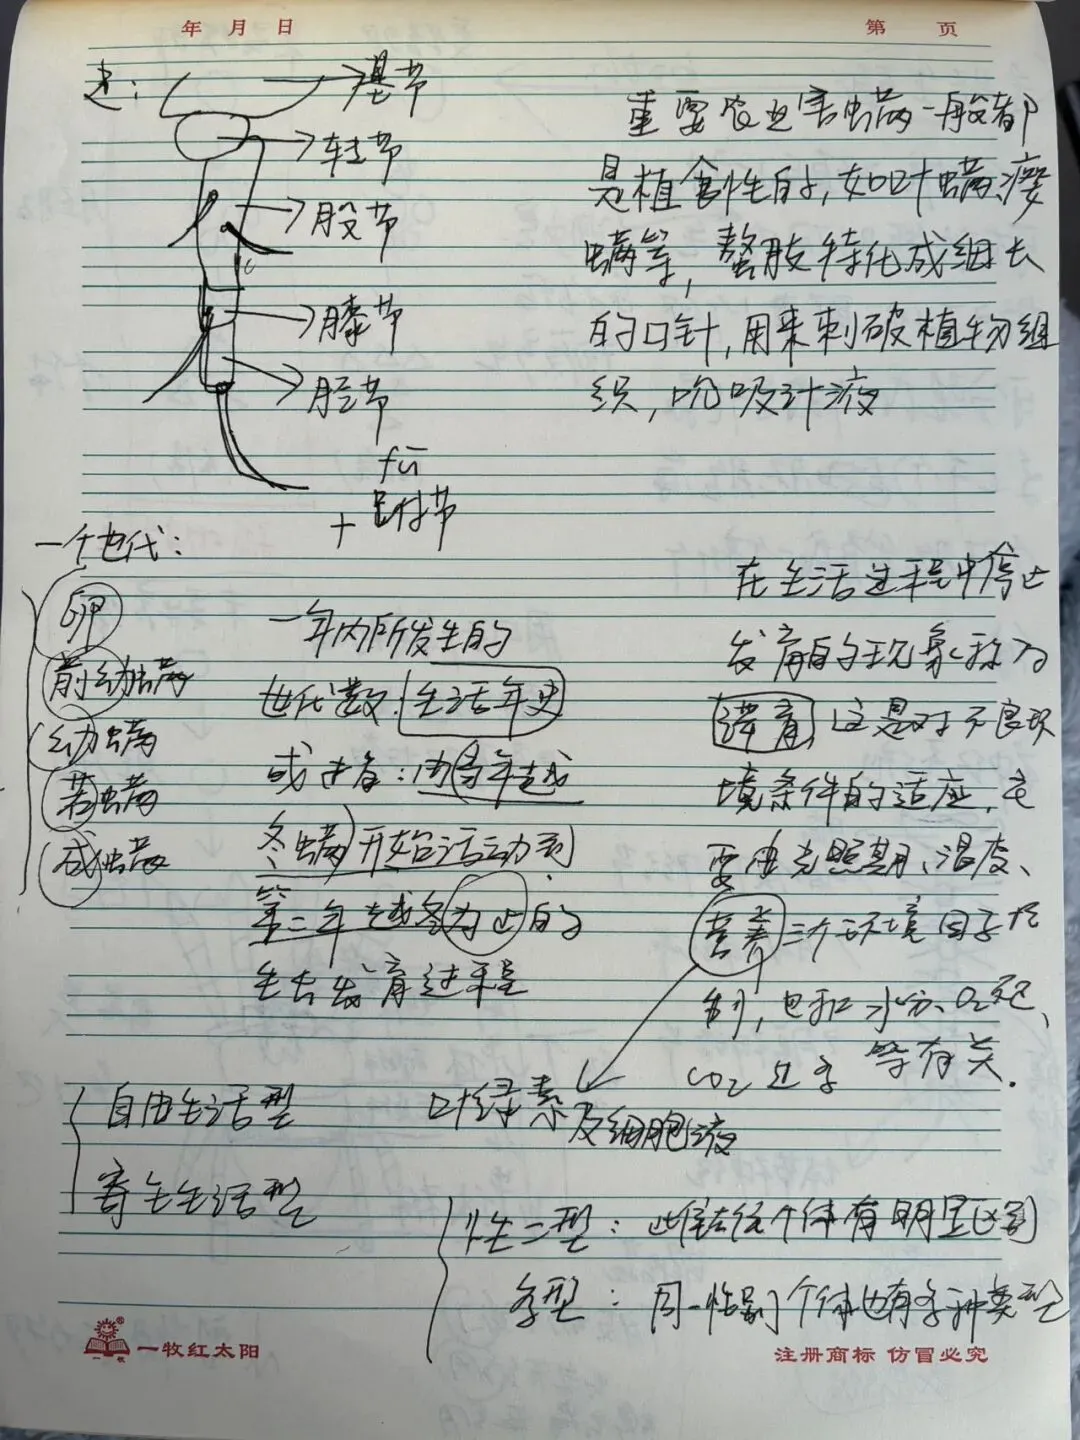 年 月 日
第 页
足：
基节
转节
股节
膝节
胫节
fū
+ 跗节
重要农业害虫螨一般都
是植食性的，如叶螨、瘿
螨等，螯肢特化成细长
的口针，用来刺破植物组
织，吮吸汁液
一个世代：
卵
前幼螨
幼螨
若螨
成螨
一年内所发生的
世代数：生活年史
或者：由当年越
冬螨开始活动到
第二年越冬为止的
生长发育过程
在生活过程中停止
发育的现象称为
滞育，这是对不良环
境条件的适应，主
要由光照期、温度、
营养三个环境因子控
制，也和水分、O₂
CO₂ 等有关.
叶绿素及细胞液
自由生活型
寄生生活型
性二型：雌雄个体有明显区别
多型：同一性别个体也有多种类型
一牧
一牧红太阳
注册商标 仿冒必究